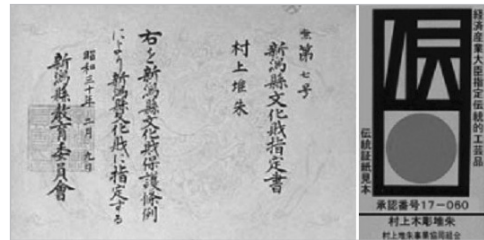 第七号
新潟縣文化財指定書
村上堆朱
右を新潟縣文化財保護條例
により新潟縣文化財に指定する
昭和三十年二月九日
新潟縣教育委員會
経済産業大臣指定伝統的工芸品
伝
伝統証紙見本
承認番号17-060
村上木彫堆朱
村上堆朱事業協同組合